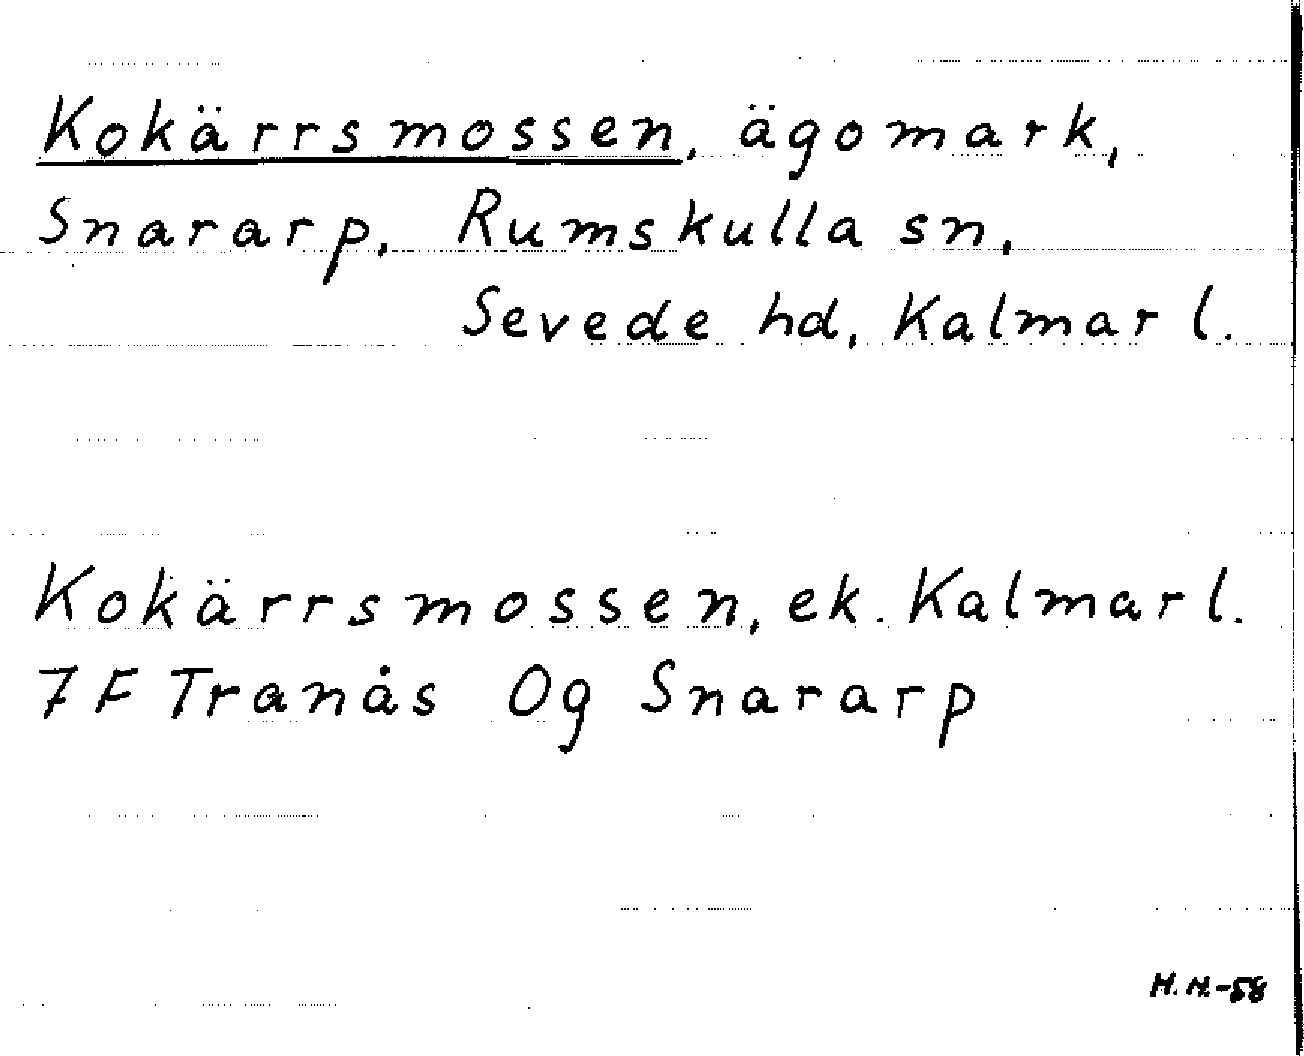 Kokärrsmossen, ägomark,
Snararp, Rumskulla sn,
Sevede hd, Kalmar l.
Kokärrsmossen, ek. Kalmar l.
7F Tranås Og Snararp
H.H.-58